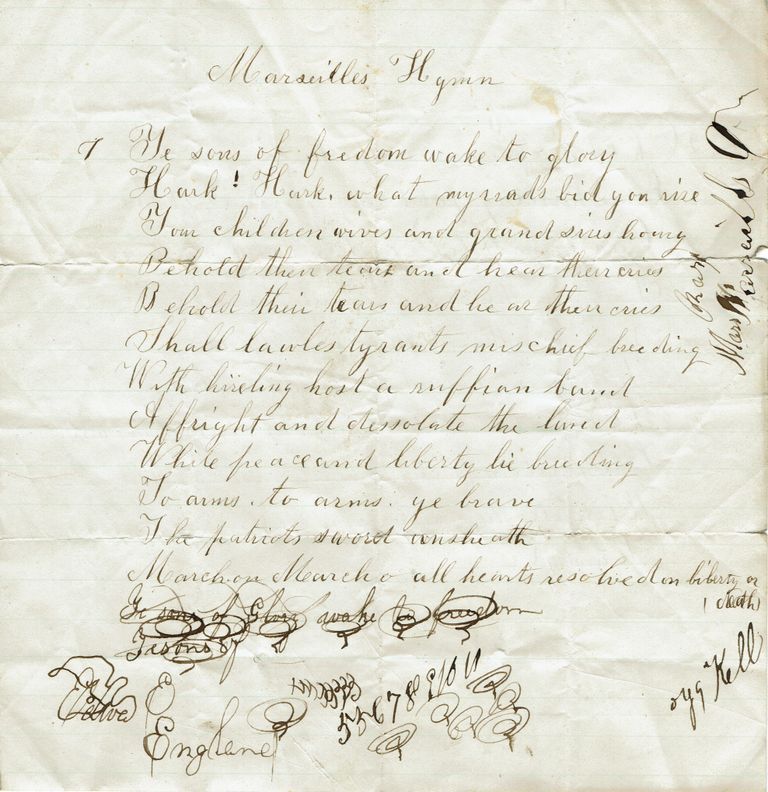 Marseilles Hymn
1 Ye sons of fredom wake to glory
Hark! Hark. what myriads bid you rise
Your children wives and grand sires hoary
Behold their tears and hear their cries
Behold their tears and hear their cries
Shall lawles tyrants mischief breeding
With hireling host a ruffian band
Affright and dissolate the land
While peace and liberty lie breeding
To arms. to arms. ye brave
The patriots sword unsheath
March on March o all hearts resolved on liberty or
death
Ye sons of Glory wake to freedom
Ye sons of
E
England
5 5 6 7 8 9 10 11
Kell